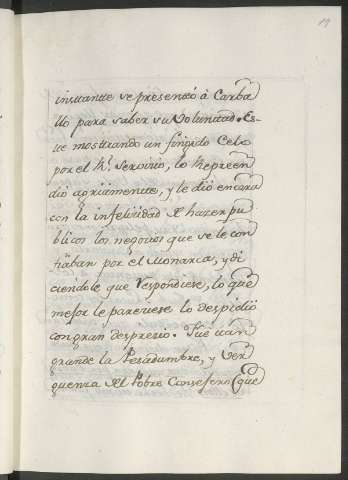 19
instante se presentó à Carba
llo para saber su Voluntad. Es-
te mostrando un fingido Celo
por el Rl. Servicio, lo Repreen
dió agriamente, y le dió en cara
con la infelicidad de hazer pu
blicos los negocios que se le con
fiaban por el Monarca, y di
ciendole que Respondiese, lo que
mejor le pareciese lo despidió
con gran desprecio. Fue tan
grande la Pesadumbre, y Ver
guenza del Pobre Consejero (que